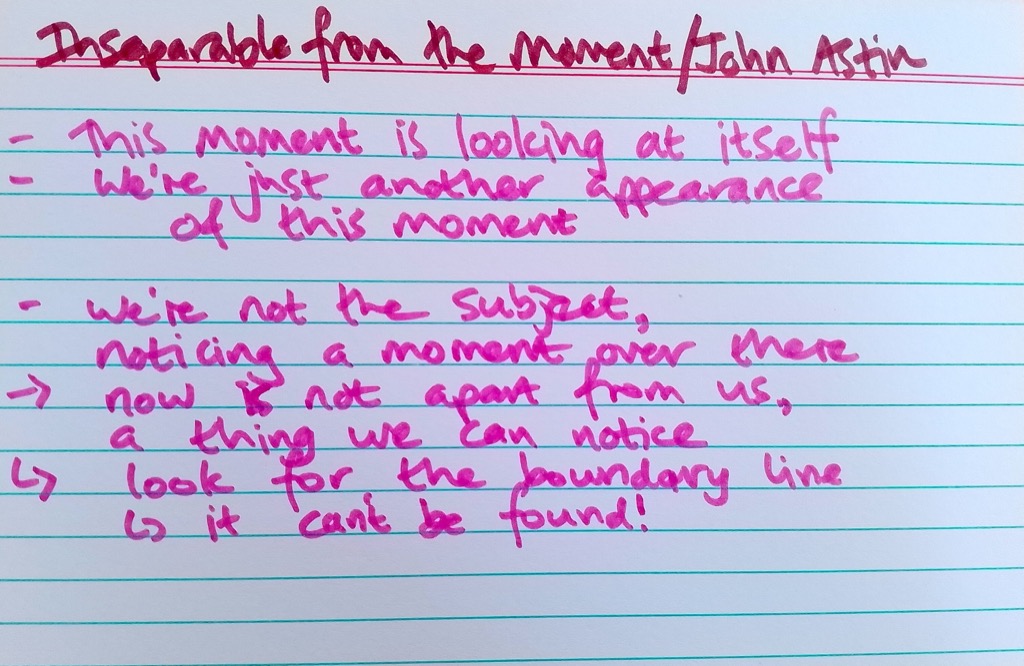 Inseparable from the moment/John Astin
- This moment is looking at itself
- We're just another appearance
of this moment
- we're not the subject,
noticing a moment over there
→ now is not apart from us,
a thing we can notice
↳ look for the boundary line
↳ it can't be found!